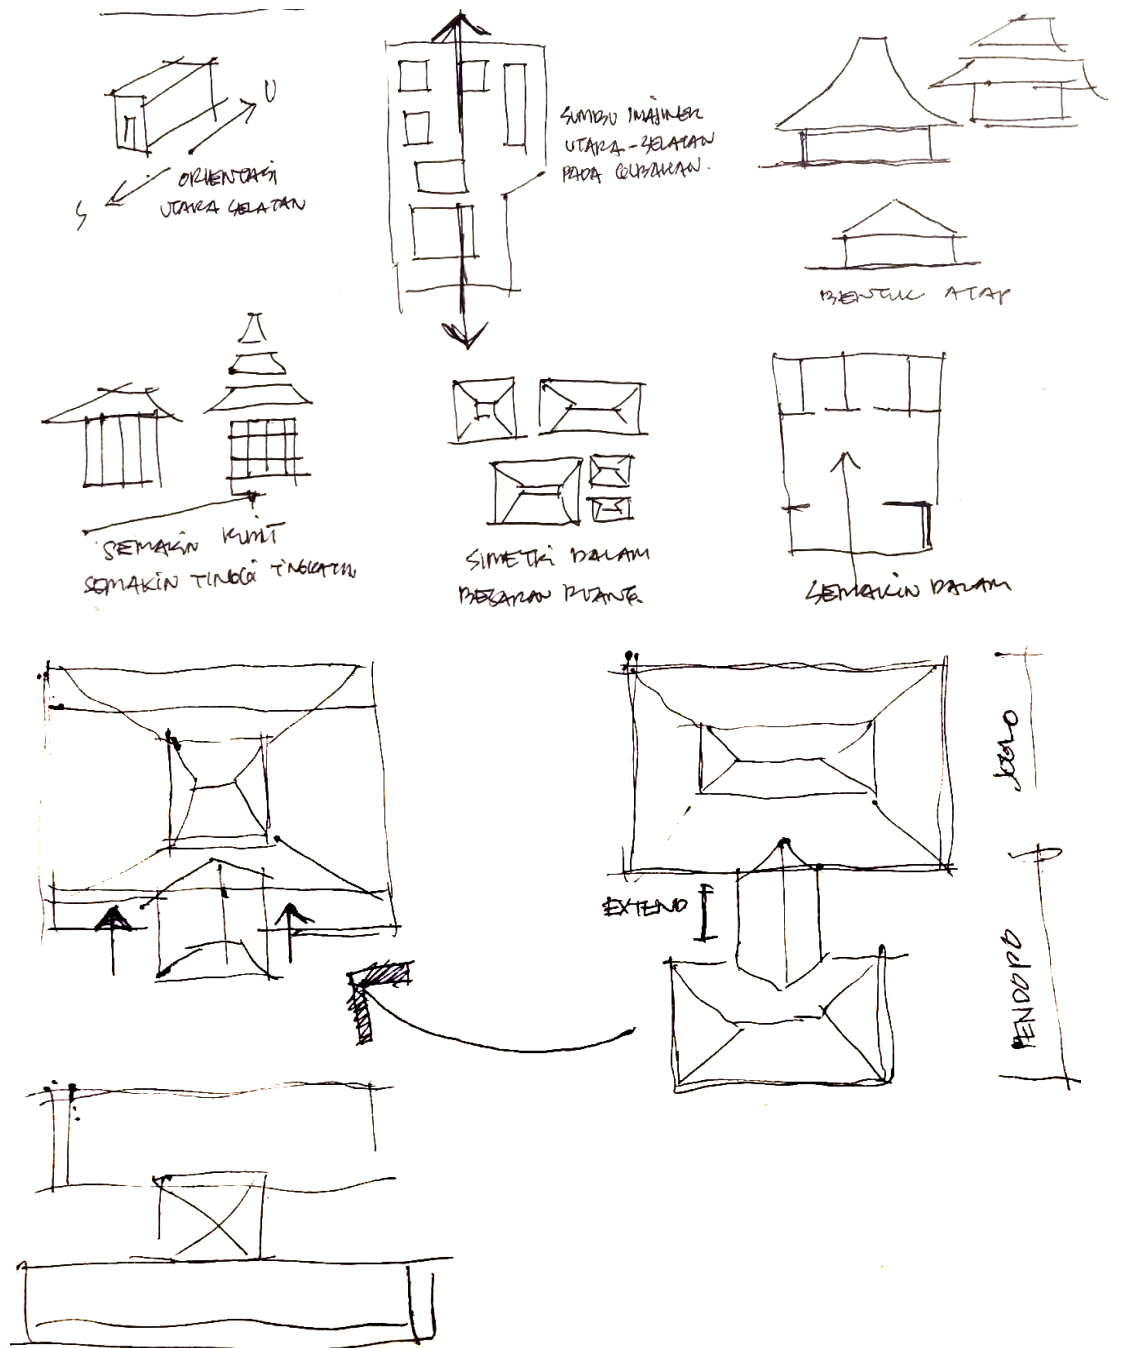 U
ORIENTASI
UTARA SELATAN
S
SUMBU IMAJINER
UTARA-SELATAN
PADA
BENTUK ATAP
SEMAKIN
SEMAKIN TINGGI
SIMETRI DALAM
BESARAN RUANG
SEMAKIN DALAM
JOGLO
EXTEND
PENDOPO